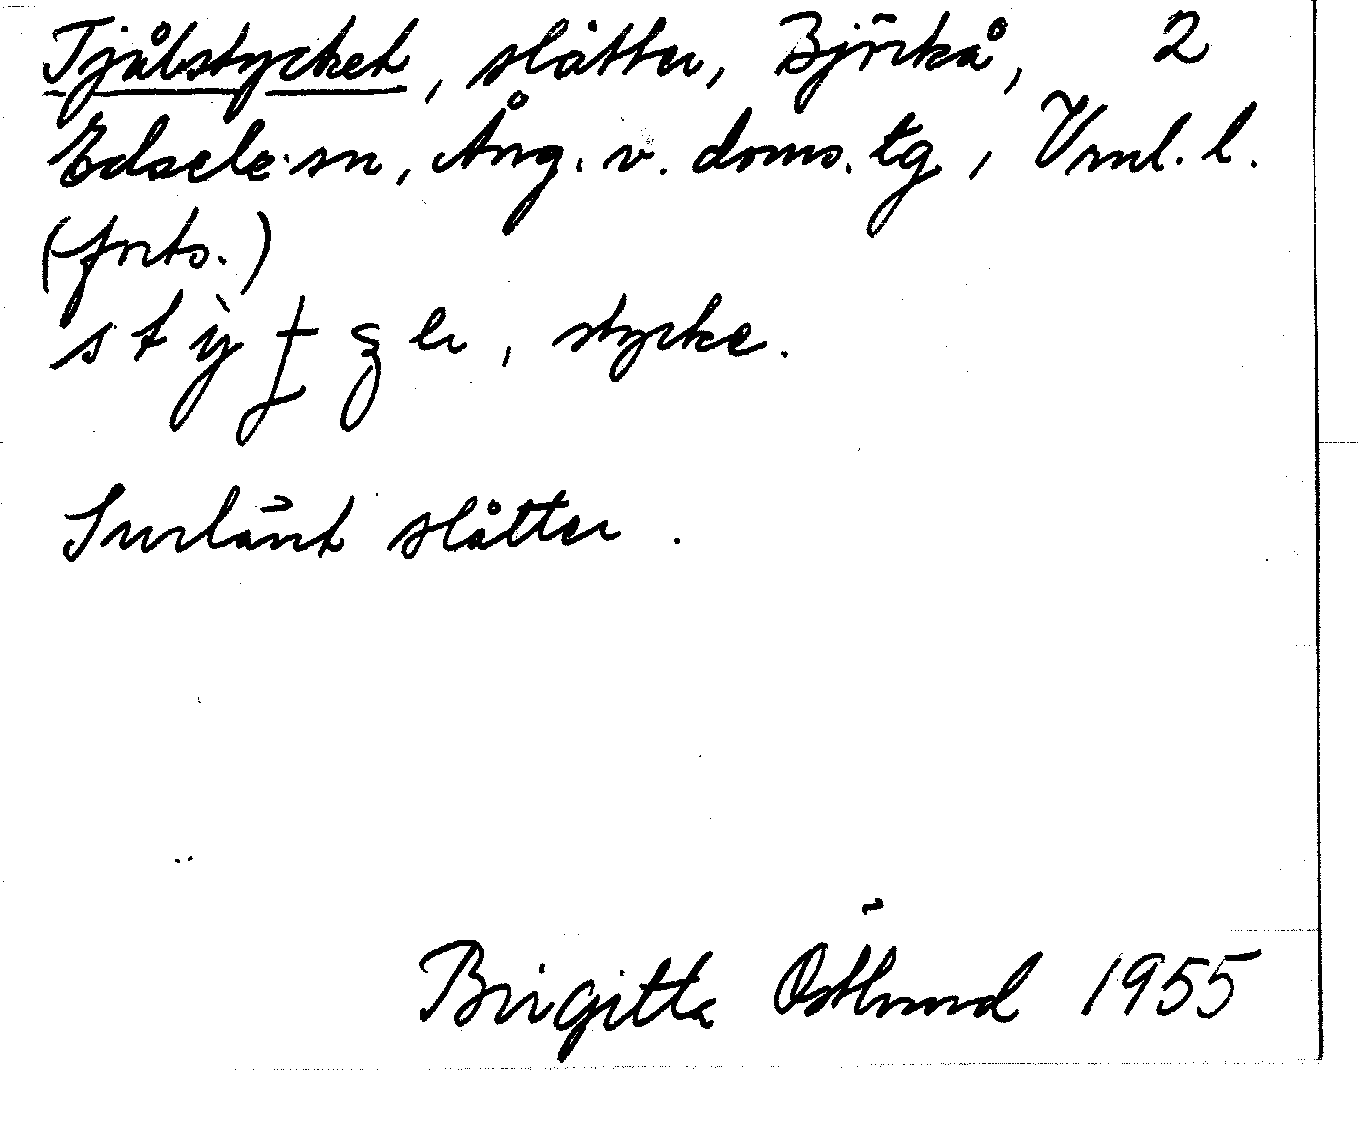 Tjålstycket, slåtter, Björkå, 2
Edsele sn, Ång. v. doms. tg, Vrnl. l.
(forts.)
, stycke.
Surlänt slåtter.
Birgitta Östlund 1955